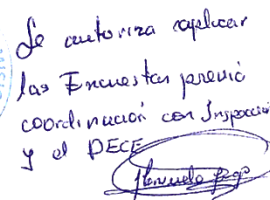 Se autoriza aplicar
las Encuestas previó
coordinación con Inspección
y el DECE